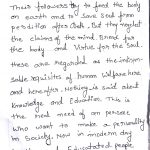 Their followers try to feed the body
on earth and to save Soul from
after death. But they neglect
the claims of the mind. Bread for
the body and Virtue for the Soul,
these are regarded as the indispen-
sable requisites of human Welfare here
and hereafter. Nothing is said about
Knowledge and Education. This is
the need of on person
who want to make a personality
in Society. Now in modern day
Educated people